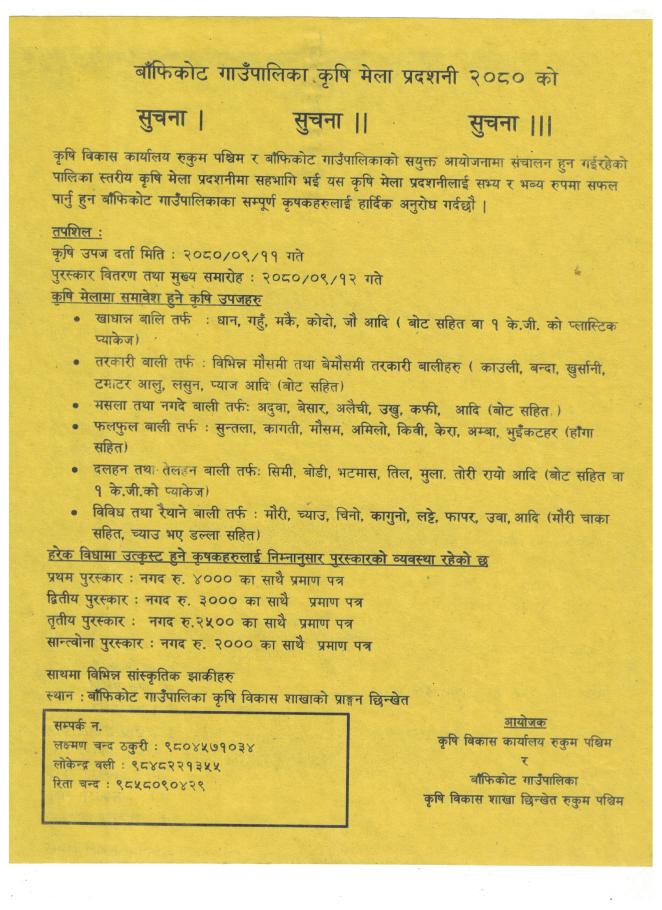 बाँफिकोट गाउँपालिका कृषि मेला प्रदशनी २०८० को
सुचना |  सुचना ||  सुचना |||
कृषि विकास कार्यालय रुकुम पश्चिम र बाँफिकोट गाउँपालिकाको सयुक्त आयोजनामा संचालन हुन गईरहेको
पालिका स्तरीय कृषि मेला प्रदशनीमा सहभागि भई यस कृषि मेला प्रदशनीलाई सभ्य र भव्य रुपमा सफल
पार्नु हुन बाँफिकोट गाउँपालिकाका सम्पूर्ण कृषकहरुलाई हार्दिक अनुरोध गर्दछौ |
तपशिल :
कृषि उपज दर्ता मिति : २०८०/०९/११ गते
पुरस्कार वितरण तथा मुख्य समारोह : २०८०/०९/१२ गते
कृषि मेलामा समावेश हुने कृषि उपजहरु
• खाधान्न बालि तर्फ : धान, गहुँ, मकै, कोदो, जौ आदि ( बोट सहित वा १ के.जी. को प्लास्टिक
प्याकेज)
• तरकारी बाली तर्फ : विभिन्न मौसमी तथा बेमौसमी तरकारी बालीहरु ( काउली, बन्दा, खुर्सानी,
टमाटर आलु, लसुन, प्याज आदि (बोट सहित)
• मसला तथा नगदे बाली तर्फः अदुवा, बेसार, अलैची, उखु, कफी, आदि (बोट सहित.)
• फलफुल बाली तर्फ : सुन्तला, कागती, मौसम, अमिलो, किवी, केरा, अम्बा, भुइँकटहर (हाँगा
सहित)
• दलहन तथा तेलहन बाली तर्फः सिमी, बोडी, भटमास, तिल, मुला. तोरी रायो आदि (बोट सहित वा
१ के.जी.को प्याकेज)
• विविध तथा रैयाने बाली तर्फ : मौरी, च्याउ, चिनो, कागुनो, लट्टे, फापर, उवा, आदि (मौरी चाका
सहित, च्याउ भए डल्ला सहित)
हरेक विधामा उत्कृस्ट हुने कृषकहरुलाई निम्नानुसार पुरस्कारको व्यवस्था रहेको छ
प्रथम पुरस्कार : नगद रु. ४००० का साथै प्रमाण पत्र
द्वितीय पुरस्कार : नगद रु. ३००० का साथै प्रमाण पत्र
तृतीय पुरस्कार : नगद रु.२५०० का साथै प्रमाण पत्र
सान्त्वोना पुरस्कार : नगद रु. २००० का साथै प्रमाण पत्र
साथमा विभिन्न सांस्कृतिक झाकीहरु
स्थान : बाँफिकोट गाउँपालिका कृषि विकास शाखाको प्राङ्गन छिन्खेत
सम्पर्क न.
लक्ष्मण चन्द ठकुरी : ९८०४५७१०३४
लोकेन्द्र वली : ९८४८२२१३५५
रिता चन्द : ९८५८०९०४२९
आयोजक
कृषि विकास कार्यालय रुकुम पश्चिम
र
बाँफिकोट गाउँपालिका
कृषि विकास शाखा छिन्खेत रुकुम पश्चिम